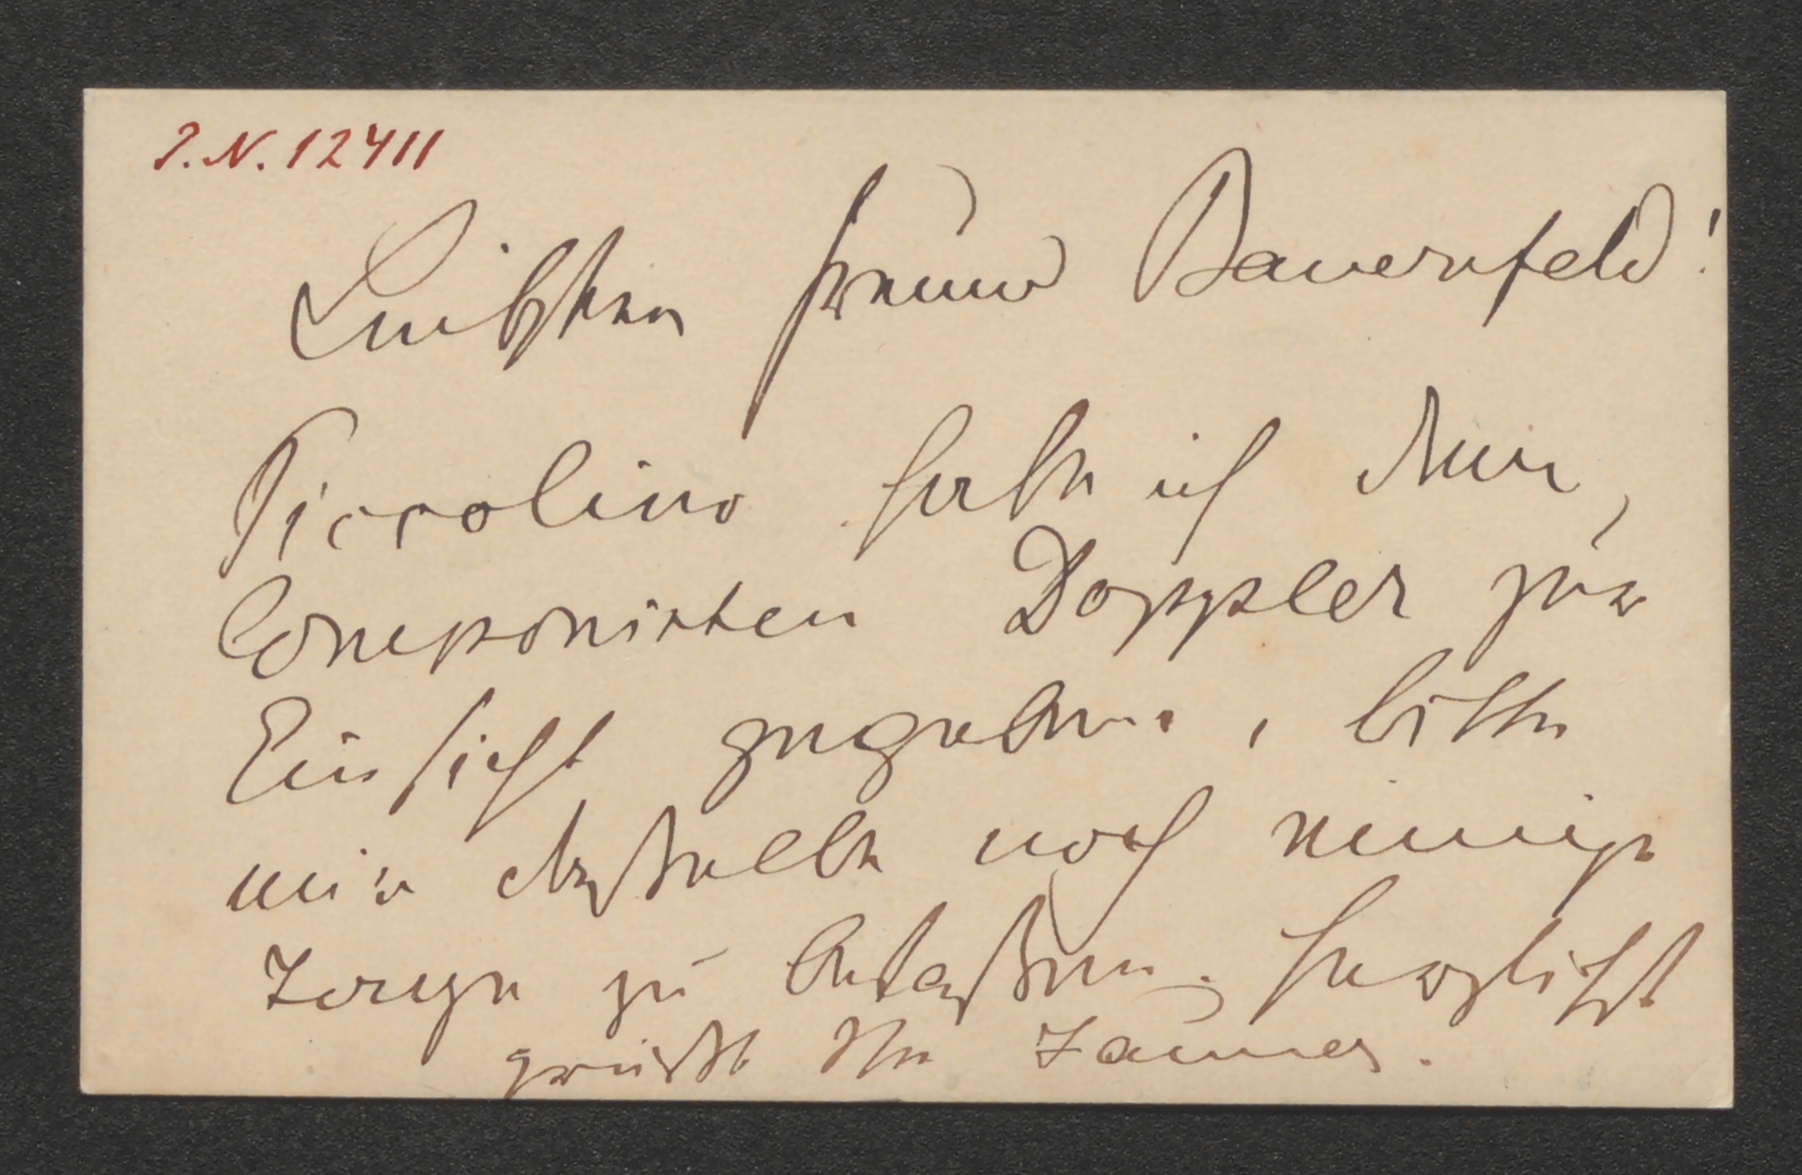 I.N. 12411
Liebster Freund Bauernfeld!
Piccolino habe ich dem
Componisten Doppler zur
Einsicht gegeben, bitte
mir dasselbe noch einige
Tage zu belaßen. Herzlichst
grüßt Ihr Jauner.